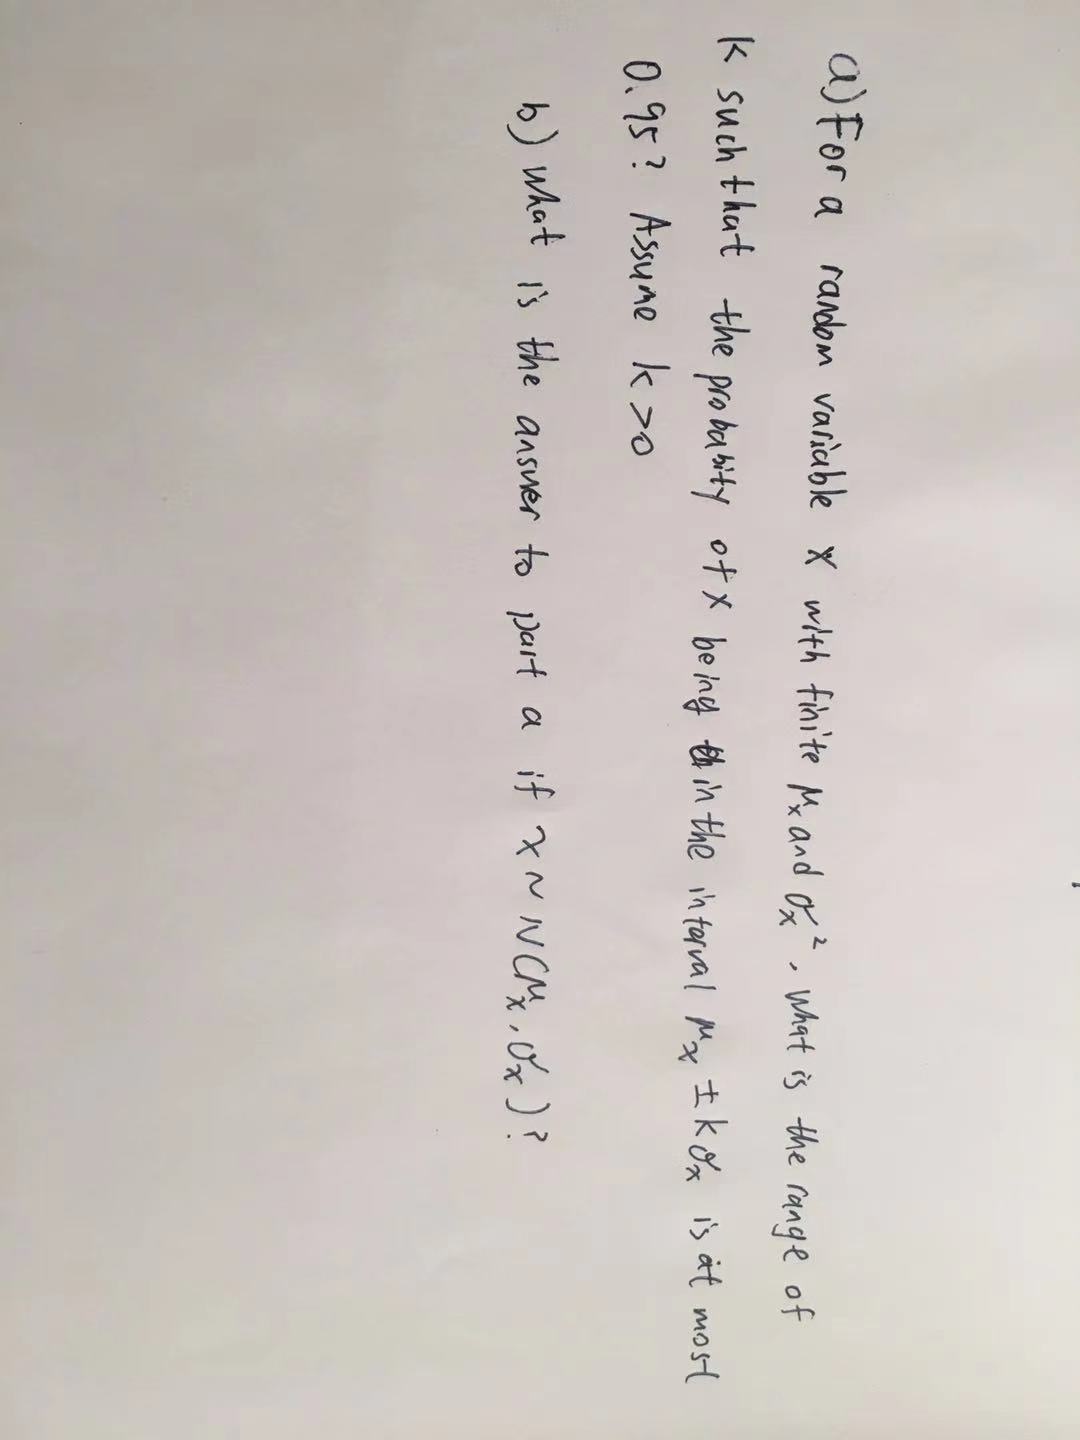 a) For a random variable X with finite μₓ and σₓ², what is the range of
k such that the probabity of x being in the interval μₓ ± kσₓ is at most
0.95? Assume k>0
b) what is the answer to part a if x ~ N(μₓ, σₓ)?